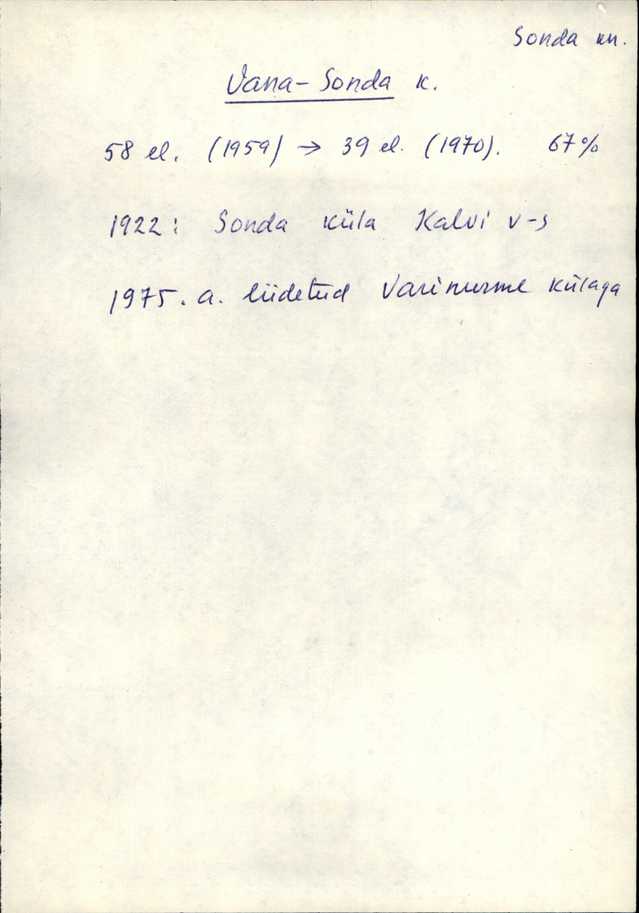 Sonda kn.
Vana-Sonda k.
58 el. (1959) → 39 el. (1970). 67%
1922: Sonda küla Kalvi v-s
1975. a. liidetud Varinurme külaga